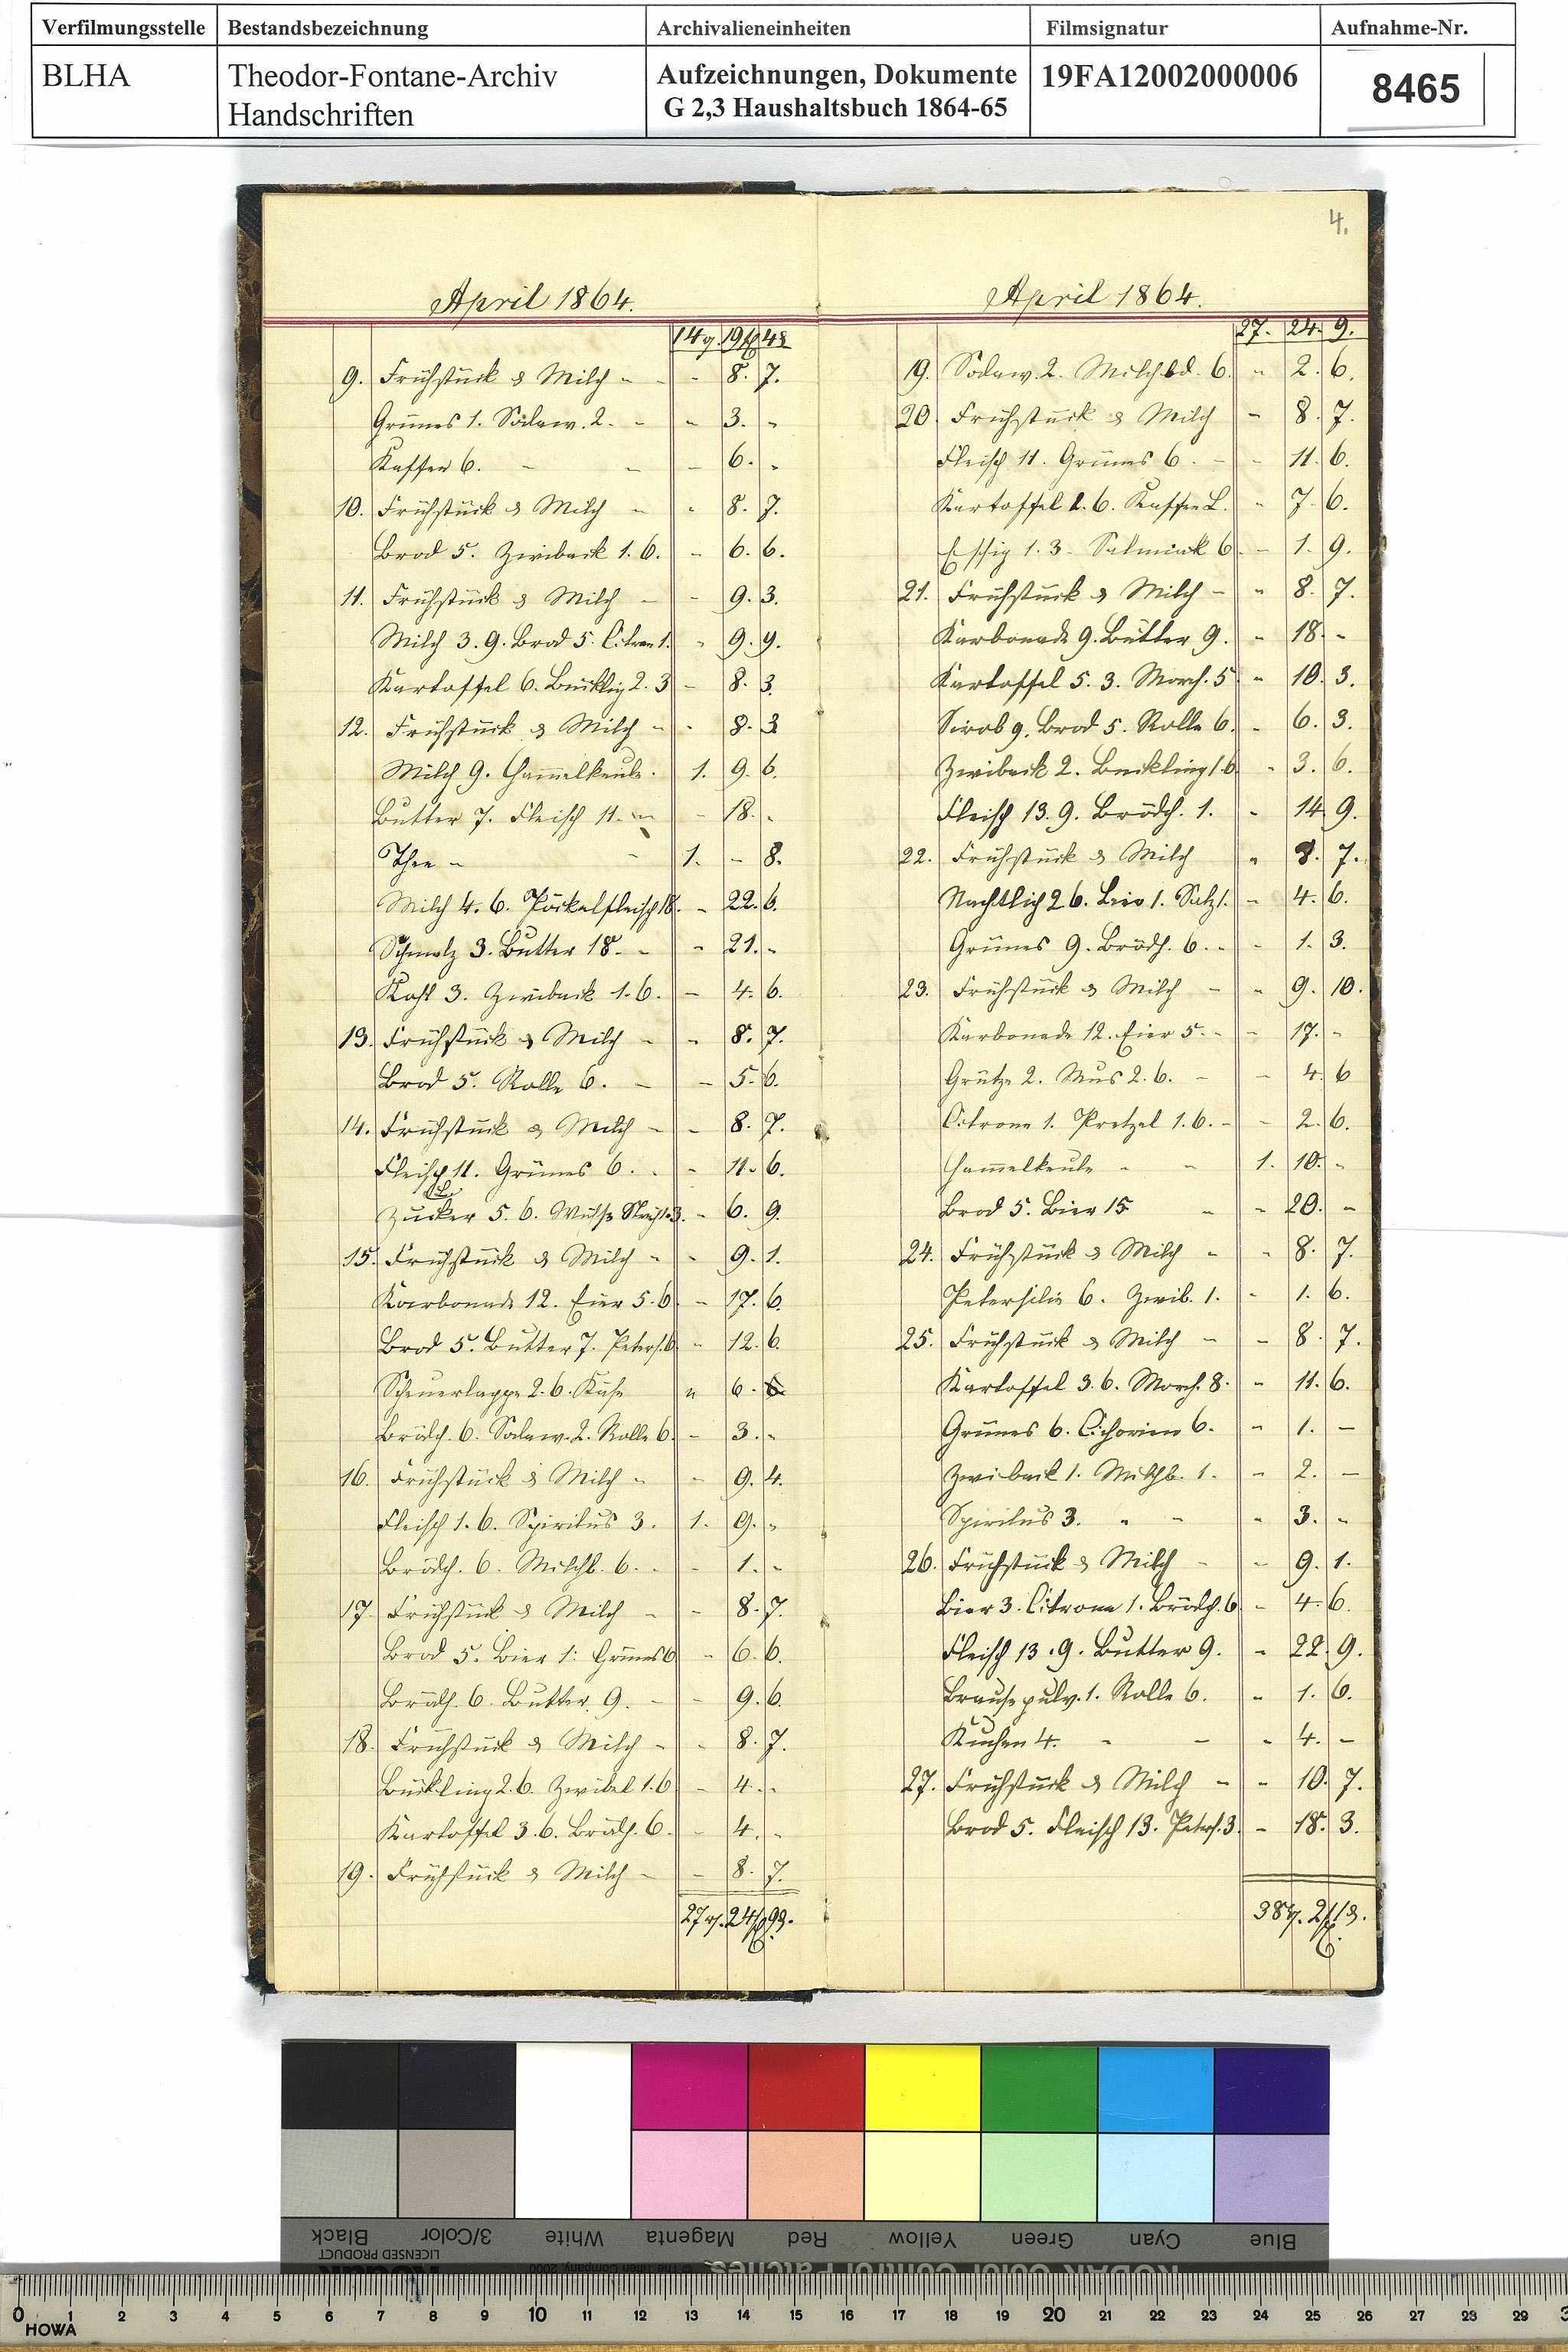 Verfilmungsstelle Bestandsbezeichnung Archivalieneinheiten Filmsignatur Aufnahme-Nr.
BLHA Theodor-Fontane-Archiv Handschriften Aufzeichnungen, Dokumente G 2,3 Haushaltsbuch 1864-65 19FA12002000006 8465
April 1864.
14 19 4
9. Frühstück & Milch - - - 8. 7.
Grünes 1. Sodaw. 2. - - 3. -
Kaffee 6. - - - 6. -
10. Frühstück & Milch - - 8. 7.
Brod 5. Zwiback 1. 6. - 6. 6.
11. Frühstück & Milch - - 9. 3.
Milch 3. 9. Brod 5. Citron 1. - 9. 9.
Kartoffel 6. Bückling 2. 3 - 8. 3.
12. Frühstück & Milch - - 8. 3
Milch 9. Hammelkeule. 1. 9. 6.
Butter 7. Fleisch 11. - - 18. -
Thee - - 1. - 8.
Milch 4. 6. Pöckelfleisch 18. - 22. 6.
Schmalz 3. Butter 18. - - 21. -
Kohl 3. Zwiback 1. 6. - 4. 6.
13. Frühstück & Milch - - 8. 7.
Brod 5. Rolle 6. - - 5. 6.
14. Frühstück & Milch - - 8. 7.
Fleisch 11. Grünes 6. - - 11. 6.
Zucker 5. 6. 3. - 6. 9.
15. Frühstück & Milch - - 9. 1.
Karbonade 12. Eier 5. 6. - 17. 6.
Brod 5. Butter 7. Peters. 6. - 12. 6.
Scheuerlappe 2. 6. Käse - 6.
Brödch. 6. Sodaw. 2. Rolle 6. - 3. -
16. Frühstück & Milch - - 9. 4.
Fleisch 1. 6. Spiritus 3. 1. 9. -
Brödch. 6. Milchb. 6. - - 1. -
17. Frühstück & Milch - - 8. 7.
Brod 5. Bier 1. Grünes 6 - 6. 6.
Brödch. 6. Butter. 9. - - 9. 6.
18. Frühstück & Milch - - 8. 7.
Bückling 2. 6. Zwibel 1. 6 - 4. -
Kartoffel 3. 6. Brödch. 6. - 4. -
19. Frühstück & Milch - - 8. 7.
27 24 9
4.
April 1864.
27. 24. 9.
19. Sodaw. 2. Milchbd. 6. - 2. 6.
20. Frühstück & Milch - 8. 7.
Fleisch 11. Grünes 6. - - 11. 6.
Kartoffel 2. 6. Kaffee - 7. 6.
Essig 1. 3. Salmiak 6 - 1. 9.
21. Frühstück & Milch - - 8. 7.
Karbonade 9. Butter 9. - 18. -
Kartoffel 5. 3. Morch. 5 - 10. 3.
Sirob 9. Brod 5. Rolle 6. - 6. 3.
Zwiback 2. Buckling 1. 6 - 3. 6.
Fleisch 13. 9. Brödch. 1. - 14 9.
22. Frühstück & Milch - 8. 7.
Nachtlich 2 6. 1. Salz 1. - 4. 6.
Grünes 9. Brödch. 6. - - 1. 3.
23. Frühstück & Milch - - 9. 10.
Karbonade 12. Eier 5. - - 17. -
Grütze 2. Mus 2. 6. - - 4. 6
Citrone 1. Pretzel 1. 6. - - 2. 6.
Hammelkeule - - 1. 10. -
Brod 5. Bier 15 - - 20. -
24. Frühstück & Milch - - 8. 7.
Petersilie 6. Zwib. 1. - 1. 6.
25. Frühstück & Milch - - 8. 7.
Kartoffel 3. 6. Morch. 8. - 11. 6.
Grünes 6. Cichorien 6. - 1. -
Zwiback 1. Milchb. 1. - 2. -
Spiritus 3. - - - 3. -
26. Frühstück & Milch - - 9. 1.
Bier 3. Citrone 1. Brödch. 6 - 4. 6.
Fleisch 13. 9. Butter 9. - 22. 9.
Brausepulv. 1. Rolle 6. - 1. 6.
Kuchen 4. - - - 4. -
27. Frühstück & Milch - - 10. 7.
Brod 5. Fleisch 13. Peters. 3. - 18. 3.
38 2 1
Black 3/Color White Magenta Red Yellow Green Cyan Blue
LICENSED PRODUCT
Kodak © The Tiffen Company, 2000 KODAK Color Control Patches
0 1 2 3 4 5 6 7 8 9 10 11 12 13 14 15 16 17 18 19 20 21 22 23 24 25 26 27 28 29
HOWA